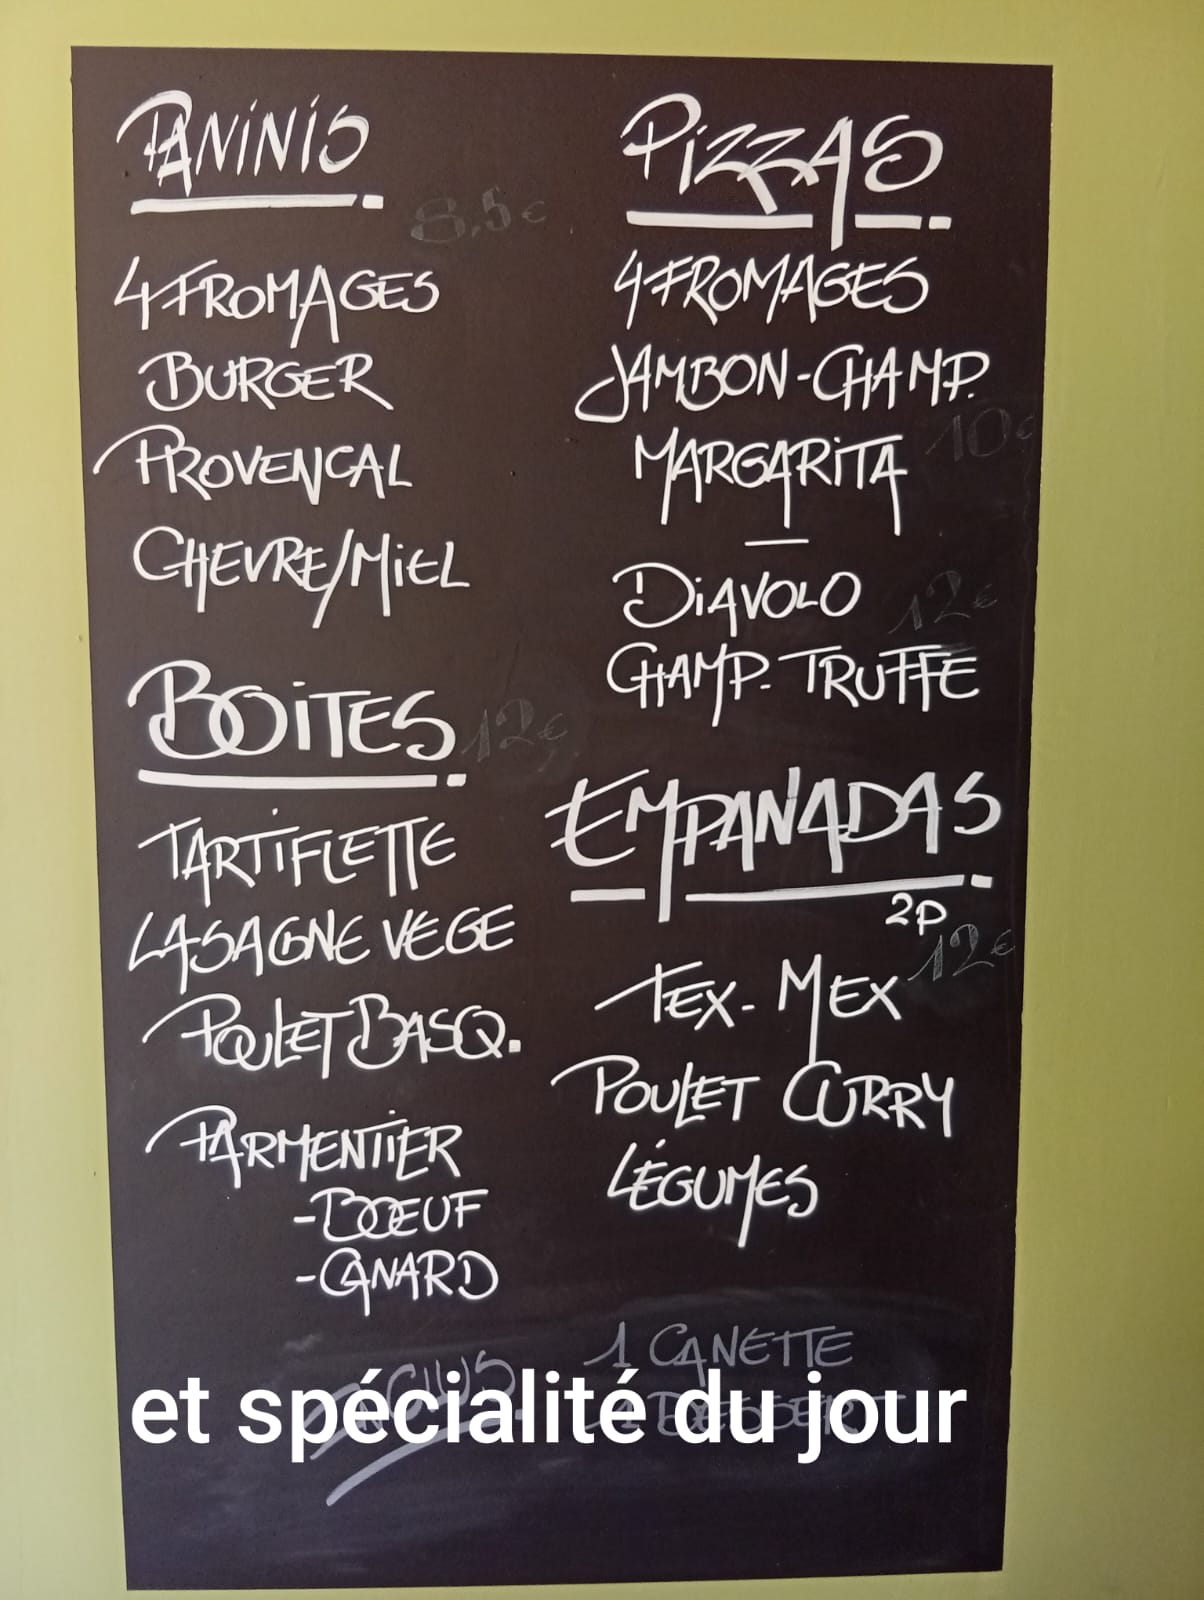 PANINIS
8.5€
4 FROMAGES
BURGER
PROVENCAL
CHEVRE/MIEL
BOITES 12€
TARTIFLETTE
LASAGNE VEGE
POULET BASQ.
PARMENTIER
-BOEUF
-CANARD
PIZZAS
4 FROMAGES
JAMBON-CHAMP.
10€
MARGARITA
DIAVOLO 12€
CHAMP. TRUFFE
EMPANADAS
2P
12€
TEX-MEX
POULET CURRY
LÉGUMES
INCLUS
1 CANETTE
1 DESSERT
et spécialité du jour